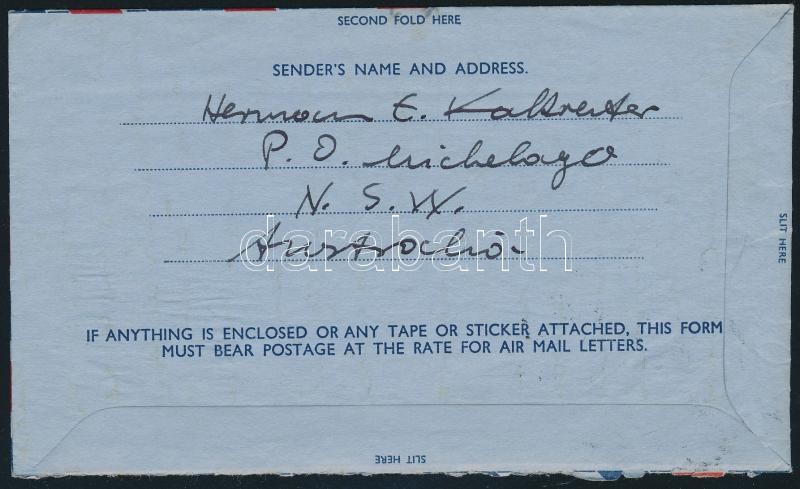 SECOND FOLD HERE
SENDER'S NAME AND ADDRESS.
Herman E. Kaltreuter
P. O. Michelago
N. S. W.
Australia
darabanth
SLIT HERE
IF ANYTHING IS ENCLOSED OR ANY TAPE OR STICKER ATTACHED, THIS FORM
MUST BEAR POSTAGE AT THE RATE FOR AIR MAIL LETTERS.
SLIT HERE